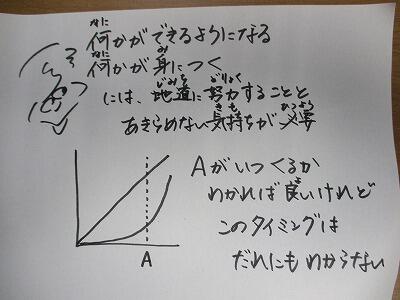 何かができるようになる
なに
何かが身につく
なに み
には、地道に努力することと
じみち どりょく
あきらめない気持ちが必要
きも ひつよう
Aがいつくるか
わかれば良いけれど
よ
このタイミングは
だれにもわからない
A